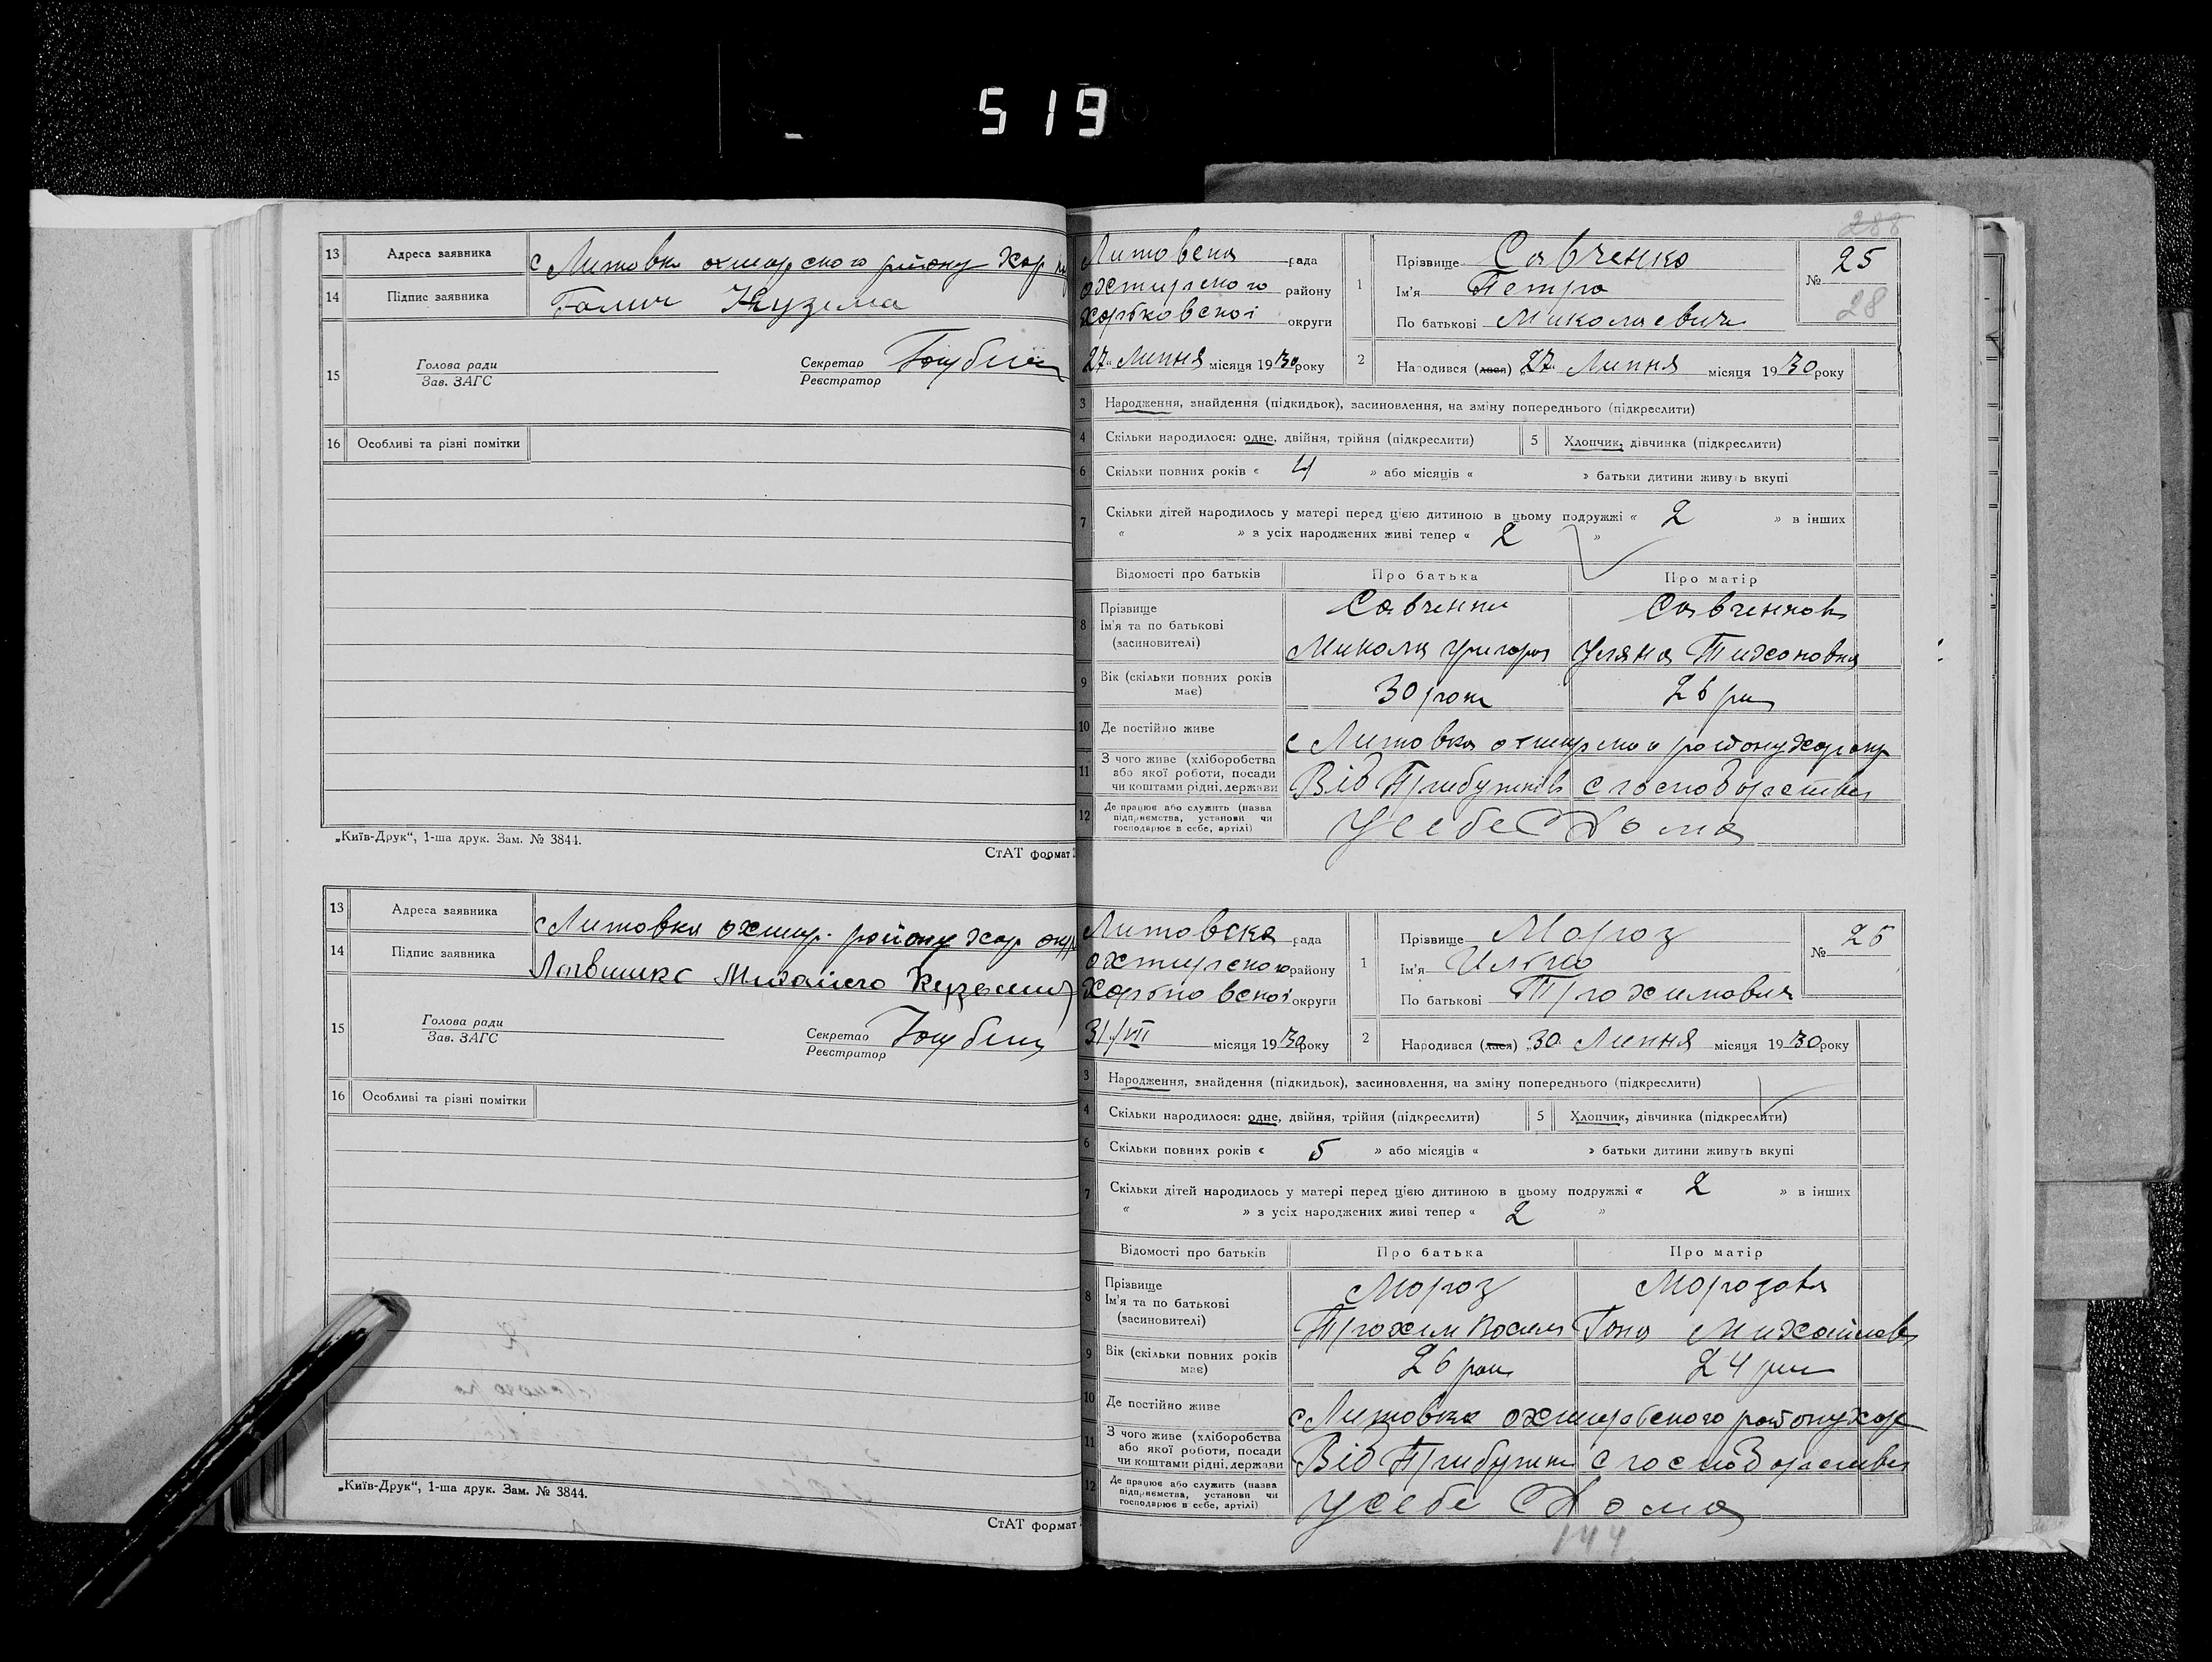 519
13 Адреса заявника с Литовка охтирского району Хар
14 Підпис заявника Галич Кузема
15 Голова ради
Зав. ЗАГС
Секретар
Реєстратор
16 Особливі та різні помітки
„Київ-Друк“, 1-ша друк. Зам. № 3844.
СтАТ формат
13 Адреса заявника с Литовка охтир. району Хар окр
14 Підпис заявника Михайло
15 Голова ради
Зав. ЗАГС
Секретар
Реєстратор
16 Особливі та різні помітки
„Київ-Друк“, 1-ша друк. Зам. № 3844.
СтАТ формат
288
Литовска рада
охтирского району
Харьковської округи
27 Липня місяця 1930 року
1 Прізвище Савченко
Ім'я Петро
По батькові Миколаевич
№ 25
28
2 Народився (лася) „27“ Липня місяця 1930 року
3 Народження, знайдення (підкидьок), засиновлення, на зміну попереднього (підкреслити)
4 Скільки народилося: одне, двійня, трійня (підкреслити) 5 Хлопчик, дівчинка (підкреслити)
6 Скільки повних років « 4 » або місяців « » батьки дитини живуть вкупі
7 Скільки дітей народилось у матері перед цією дитиною в цьому подружжі « 2 » в інших
« » з усіх народжених живі тепер « 2 »
Відомості про батьків Про батька Про матір
8 Прізвище
Ім'я та по батькові
(засиновителі)
Савченко Савченкова
Микола Григоро Уляна Тихоновна
9 Вік (скільки повних років має) 30 роки 26 рик
10 Де постійно живе с Литовка охтирского району Хар окр
11 З чого живе (хліборобства
або якої роботи, посади
чи коштами рідні, держави
Від Прибутків с господарства
12 Де працює або служить (назва
підприємства, установи чи
господарює в себе, артілі)
Усебе Дома
Литовска рада
охтирского району
Харьковської округи
31/VII місяця 1930 року
1 Прізвище Мороз
Ім'я Илько
По батькові Трохимовия
№ 26
2 Народився (лася) „30“ Липня місяця 1930 року
3 Народження, знайдення (підкидьок), засиновлення, на зміну попереднього (підкреслити)
4 Скільки народилося: одне, двійня, трійня (підкреслити) 5 Хлопчик, дівчинка (підкреслити)
6 Скільки повних років « 5 » або місяців « » батьки дитини живуть вкупі
7 Скільки дітей народилось у матері перед цією дитиною в цьому подружжі « 2 » в інших
« » з усіх народжених живі тепер « 2 »
Відомості про батьків Про батька Про матір
8 Прізвище
Ім'я та по батькові
(засиновителі)
Мороз Морозова
Трохим Васил Михайлов
9 Вік (скільки повних років має) 26 рок 24 рик
10 Де постійно живе с Литовка охтирского району Хар
11 З чого живе (хліборобства
або якої роботи, посади
чи коштами рідні, держави
Від Прибутки с господарства
12 Де працює або служить (назва
підприємства, установи чи
господарює в себе, артілі)
Усебе Дома
144